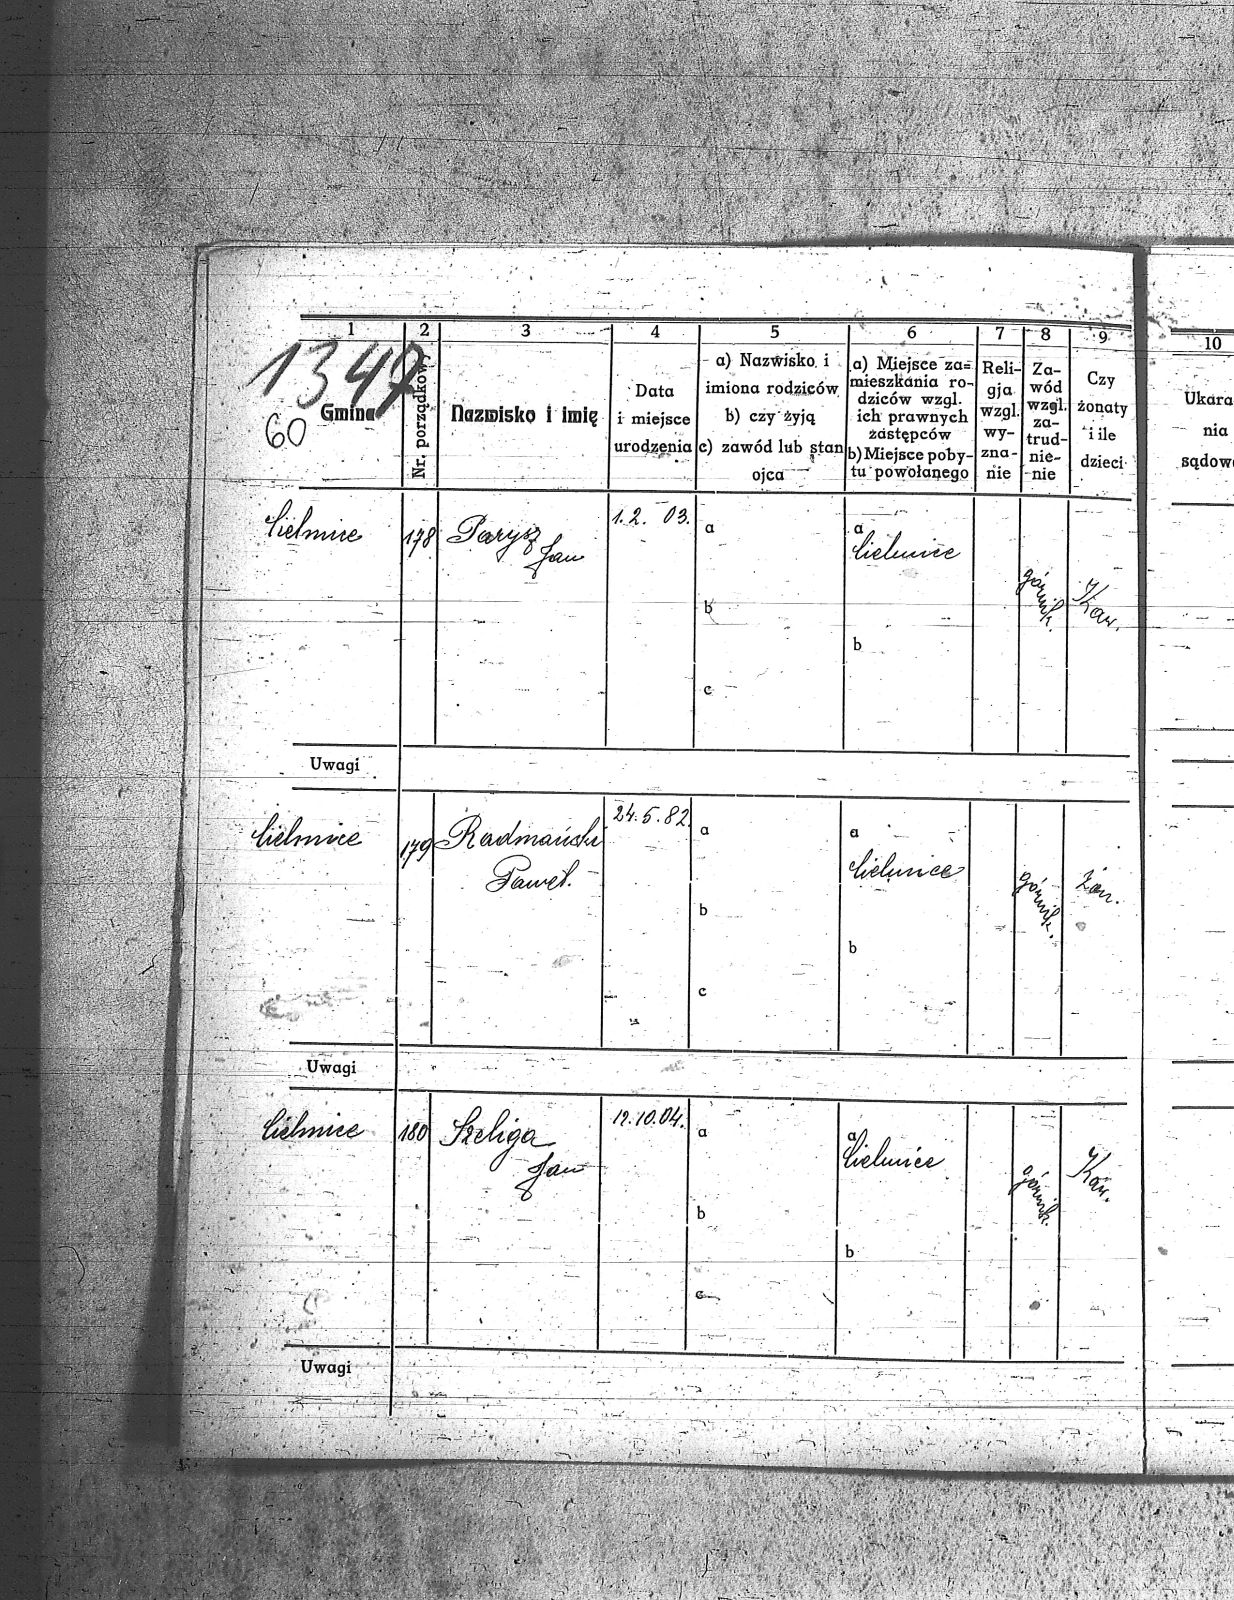 1 2 3 4 5 6 7 8 9 10
1347
60
Gmina
Nr. porządkowy
Nazwisko i imię
Data
i miejsce
urodzenia
a) Nazwisko i
imiona rodziców
b) czy żyją
c) zawód lub stan
ojca
a) Miejsce za=
mieszkania ro-
dziców wzgl.
ich prawnych
zastępców
b) Miejsce poby-
tu powołanego
Reli-
gja
wzgl.
wy-
zna-
nie
Za-
wód
wzgl.
za-
trud-
nie-
nie
Czy
żonaty
i ile
dzieci
Ukara
nia
sądow
Cielmice 178 Parysz 1.2. 03. a a
Jan Cielmice
górnik. Kaw.
b
b
c
Uwagi
Cielmice 179 Radmański 24.5.82. a a
Paweł. Cielmice górnik. żon.
b
b
c
Uwagi
Cielmice 180 Szeliga 12.10.04. a a
Jan Cielmice górnik. Kaw.
b
b
c
Uwagi